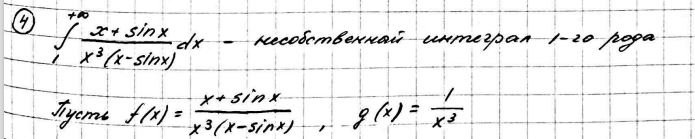 ④
∫₁^{+∞} \frac{x+sinx}{x³(x-sinx)} dx – несобственный интеграл 1-го рода
Пусть f(x) = \frac{x+sinx}{x³(x-sinx)} , g(x) = \frac{1}{x³}